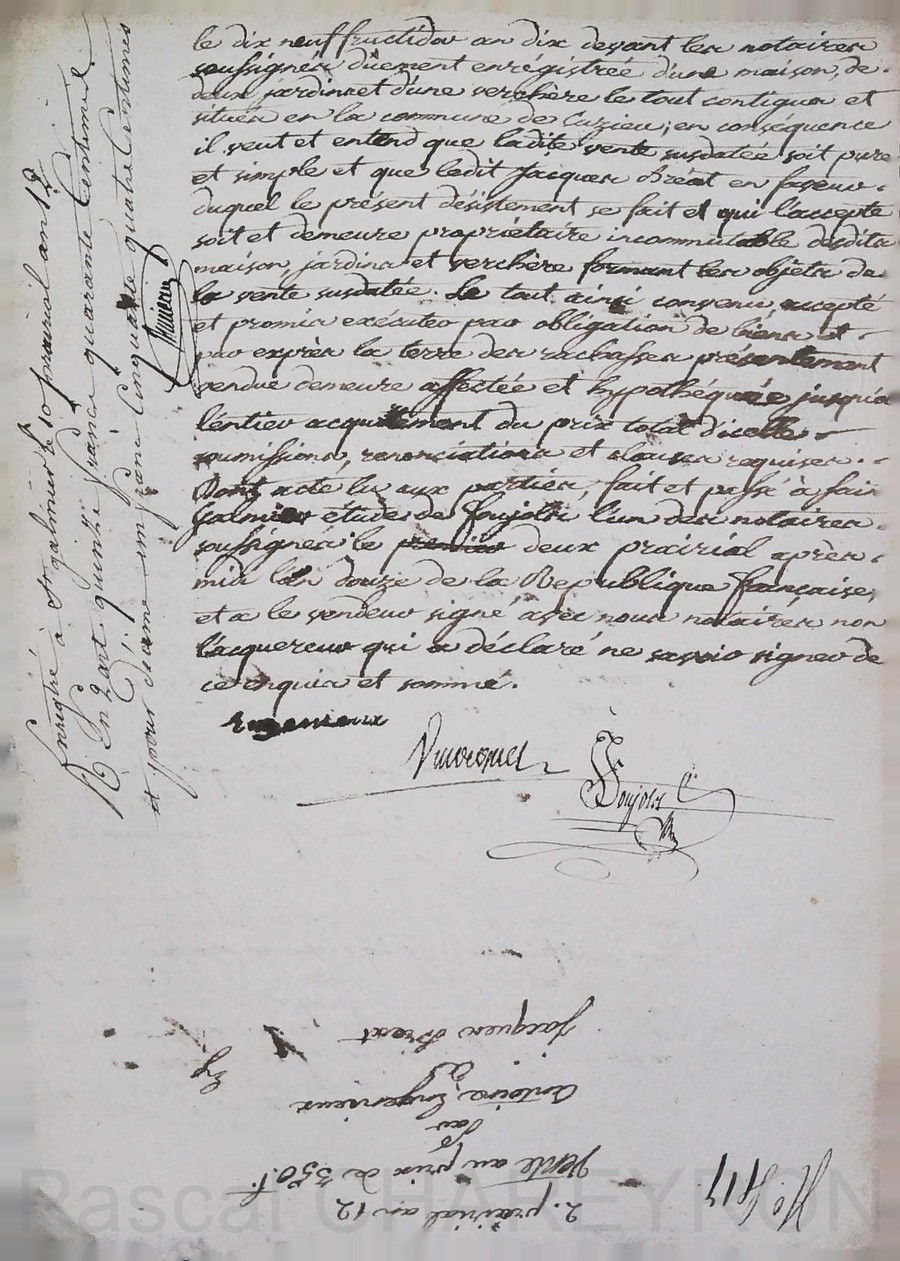 le dix neuf fructidor an dix devant les notaires
soussignés duement enrégistrée d'une maison, de
deux jardins et d'une verchère le tout contigus et
situés en la commune de Cuzieu; en conséquence
il veut et entend que ladite vente susdatée soit pure
et simple et que ledit Jacques Bréat en faveur
duquel le présent désistement se fait et qui l'accepte
soit et demeure propriétaire incommutable desdits
maison, jardins et verchère formant les objets de
la vente susdatée. Le tout ainsi convenu, accepté
et promis exécuter par obligation de biens et
par exprès la terre des rachasses présentement
vendue demeure affectée et hypothéquée jusqu'à
l'entier acquittement du prix total d'icelle
soumissions, renonciations et clauses requises.
Dont acte lu aux parties, fait et passé à
galmier étude de Foujols l'un des notaires
soussignés le premier deux prairial après
midi l'an douze de la République française,
et a le vendeur signé avec nous notaires non
l'acquereur qui a déclaré ne savoir signer de
ce enquis et sommé.
Engenieux
Foujols
Enrégité à St galmier le 10 prairial an 12
R. En 2 art. quinze francs quarante centimes
et pour dixme un franc cinquante quatre centimes
N.o 417
2. prairial an 12
Vente au prix de 350 f.
Par
Antoine Engenieux
à
Jacques Breat